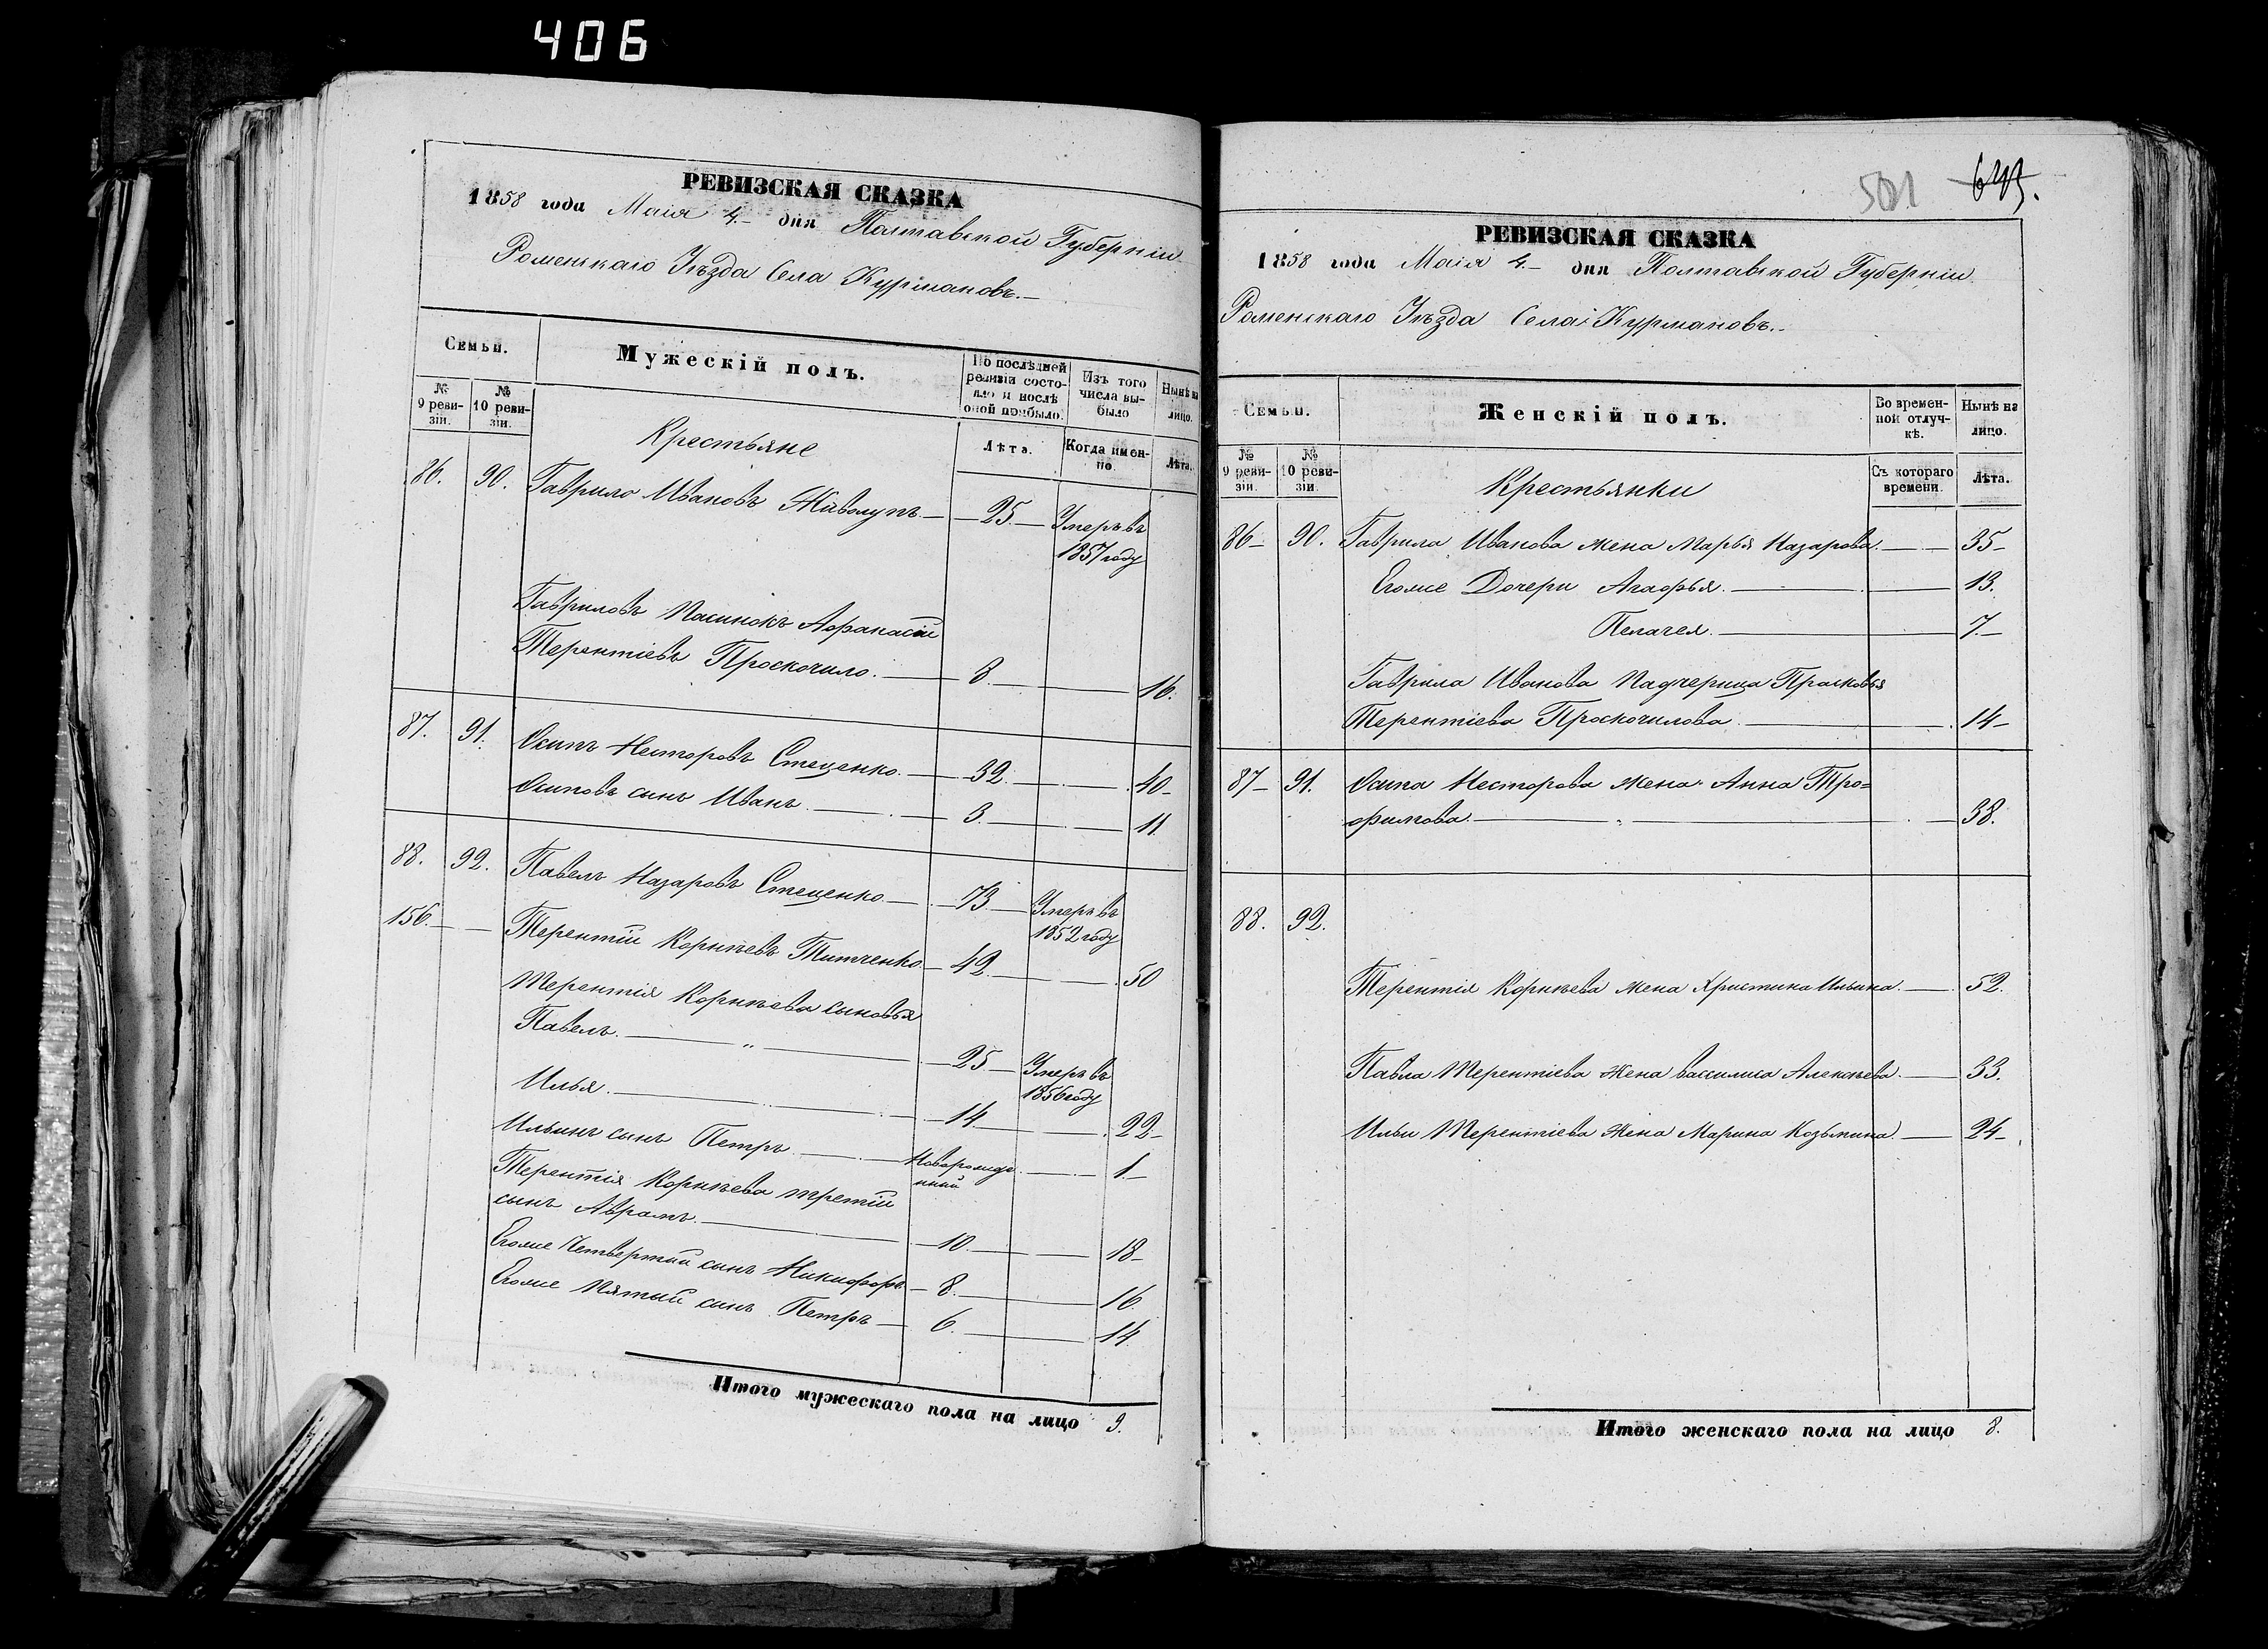 406
РЕВИЗСКАЯ СКАЗКА
1858 года Маія 4.– дня Полтавской Губерніи
Роменскаго Уѣзда Села Курмановъ.–
Семьи.
Мужескій полъ.
По послѣдней ревизіи состояло и послѣ оной прибыло.
Изъ того числа выбыло
Нынѣ на лицо.
№ 9 ревизіи.
№ 10 ревизіи.
Крестьяне
Лѣта.
Когда именно.
Лѣта.
86. 90. Гаврило Ивановъ — 25. — Умеръ въ
1857 году
Гавриловъ Пасинокъ Афанасій
Терентіевъ Проскочило. — 8. — 16.
87. 91. Осипъ Несторовъ Стеценко. — 32. — 40–
Осиповъ сынъ Иванъ. — 3. — 11.
88. 92. Павелъ Назаровъ Стеценко — 73 — Умеръ въ
1852 году
156. — Терентій Корнѣевъ Титченко — 42. — 50
Терентія Корнѣева сыновья
Павелъ. — „ — 25 — Умеръ въ
1856 году
Илья. — 14 — 22–
Ильинъ сынъ Петръ. — Новорожденный — 1.–
Терентія Корнѣева третій
сынъ Аврамъ. — 10. — 18–
Егоже Четвертый сынъ Никифоръ — 8. — 16.
Егоже Пятый сынъ Петръ — 6. — 14.
Итого мужескаго пола на лицо 9.
501
РЕВИЗСКАЯ СКАЗКА
1858 года Маія 4.– дня Полтавской Губерніи
Роменскаго Уѣзда Села Курмановъ.–
Семьи.
Женскій полъ.
Во временной отлучкѣ.
Нынѣ на лицо.
№ 9 ревизіи.
№ 10 ревизіи.
Крестьянки
Съ котораго времени.
Лѣта.
86– 90. Гаврила Иванова жена Марья Назарова. — 35–
Егоже Дочери Агафья. — 13.
Пелагея. — 7.–
Гаврила Иванова Падчерица Прасковья
Терентіева Проскочилова. — 14–
87– 91. Осипа Несторова жена Анна Тро=
фимова. — 38.
88. 92.
Терентія Корнѣева жена Христина Ильина. — 52.
Павла Терентіева Жена Василиса Алексѣева. — 33.
Ильи Терентіева Жена Марина Козьмина. — 24–
Итого женскаго пола на лицо 8.